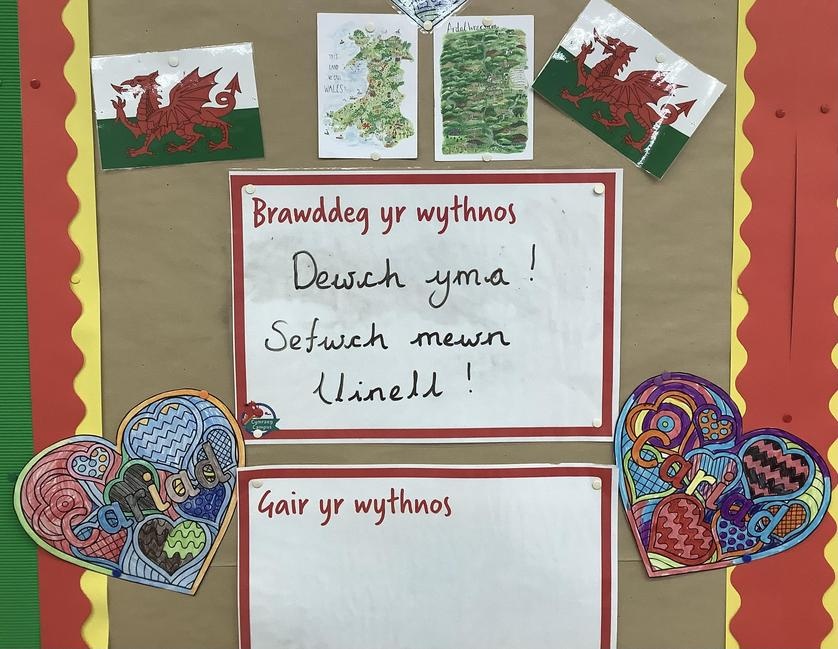 THIS
LAND
WALES
Brawddeg yr wythnos
Dewch yma!
Sefwch mewn
llinell!
Cymraeg
Campus
Cariad
Cariad
Gair yr wythnos